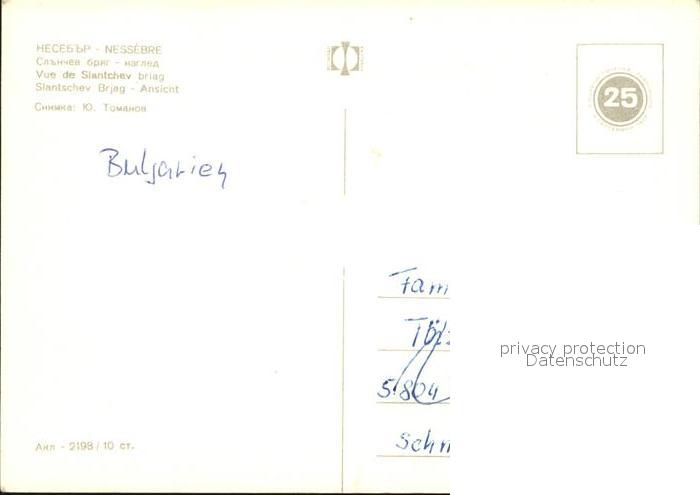 НЕСЕБЪР - NESSÈBRE
Слънчев бряг - изглед
Vue de Slantchev briag
Slantschev Brjag - Ansicht
Снимка: Ю. Томанов
25
Bulgarien
Fam
5804
Schm
privacy protection
Datenschutz
Акл - 2198 / 10 ст.